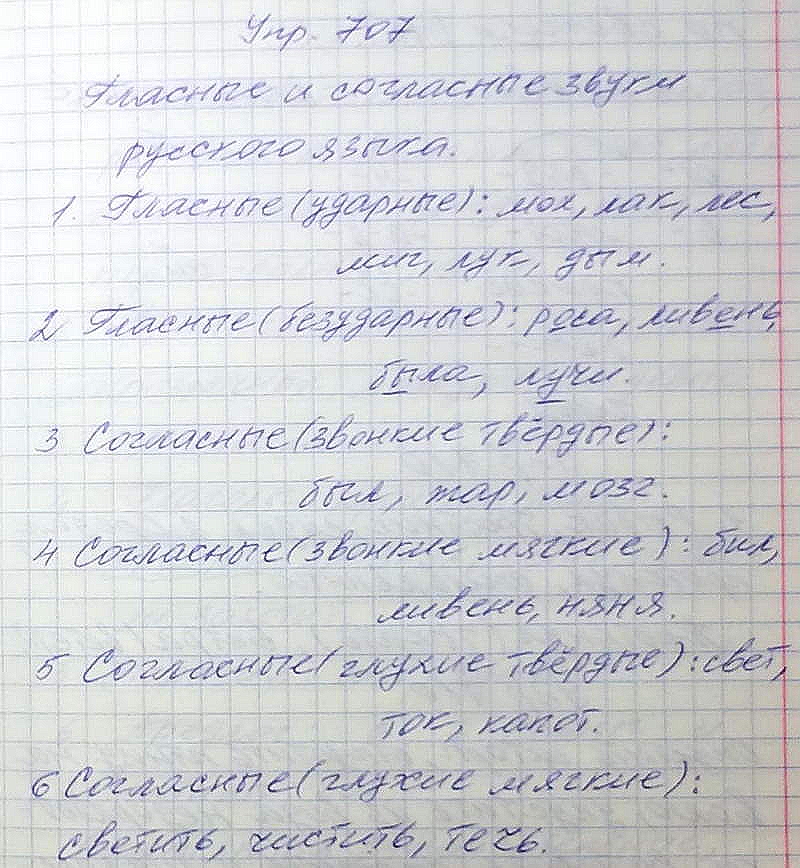 Упр. 707
Гласные и согласные звуки
русского языка.
1. Гласные (ударные): мол, лак, лес,
миг, лук, дым.
2 Гласные (безударные): роса, ливень,
была, лучи.
3 Согласные (звонкие твёрдые):
был, жар, мозг.
4 Согласные (звонкие мягкие): бил,
ливень, няня.
5 Согласные (глухие твёрдые): свет,
ток, капот.
6 Согласные (глухие мягкие):
светить, чистить, течь.